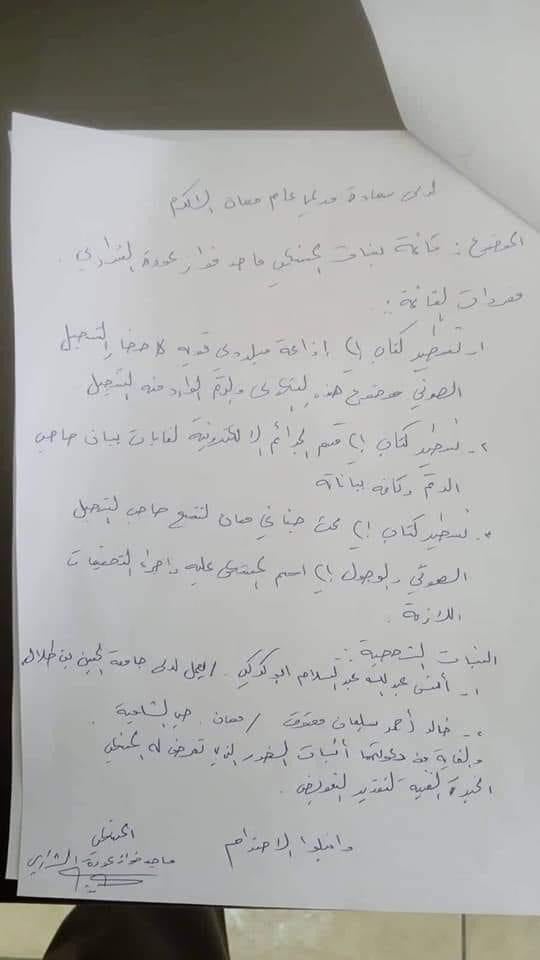 لدى سعادة مدعي عام معان الاكرم
الموضوع : قائمة بينات المشتكي ماجد فواز عودة الشراري .
مفردات القائمة :
١- تسطير كتاب إلى إذاعة ميلودي قويه لاحضار التسجيل
الصوتي موضوع هذه الشكوى والرقم الوارد منه التسجيل
٢- تسطير كتاب إلى قسم الجرائم الالكترونية لغايات بيان صاحب
الرقم وكافه بياناته
٣- تسطير كتاب إلى بحث جنائي معان لتتبع صاحب التسجيل
الصوتي والوصول إلى اسم المشتكى عليه واجراء التحقيقات
اللازمة .
البينات الشخصية :
١- أنس عبدالله عبدالسلام ابو كركي . / يعمل لدى جامعة الحسين بن طلال
٢- خالد أحمد سليمان معتوق / معان . حي الشامية .
والغاية من دعوتهما أثبات الضرر الذي تعرض له المشتكي
الخبرة الفنية لتقدير التعويض .
واقبلوا الاحترام
المشتكي
ماجد فواز عودة الشراري